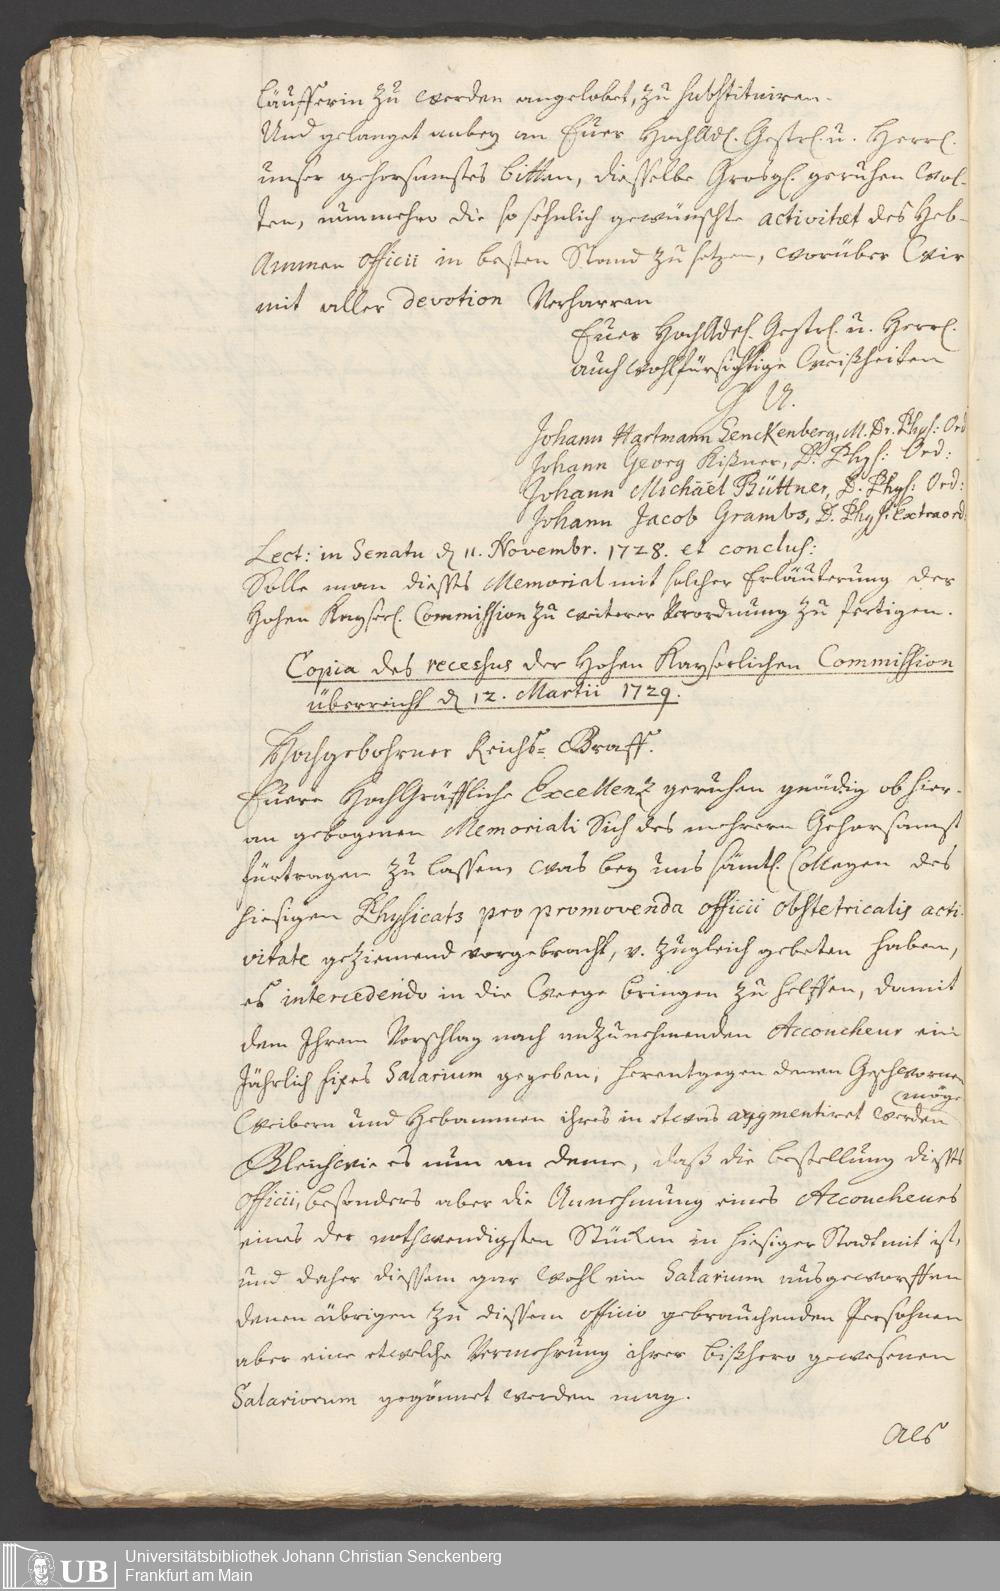 läufferin zu werden angelobet, zu substituiren.
Und gelanget anbey an Euer HochAdl. Gestr. u. Herrl.
unser gehorsamstes bitten, diesselbe Grosgl. geruhen wol-
ten, nunmehro die so sehnlich gewünschte activitæt des Heb-
Ammen officii in besten Stand zu setzen, worüber Wir
mit aller devotion Verharren
Euer HochAdl. Gestr. u. Herrl.
auch wohlfürsichtige Weißheiten
Johann Hartmann Senckenberg, M. Dr. Phys: Ord
Johann Georg Kißner, D. Phys: Ord:
Johann Michäel Büttner, D. Phys: Ord:
Johann Jacob Grambs, D. Phys: Extraord.
Lect: in Senatu d. 11. Novembr. 1728. et conclus:
Solle man diesses Memorial mit solcher Erläuterung der
Hohen Kayserl. Commission zu weiterer Verordnung zu fertigen.
Copia des recessus der Hohen Kayserlichen Commission
überreicht d. 12. Martii 1729.
Hochgebohrner Reichs-Graff.
Euere HochGräffliche Excellenz geruhen gnädig ob hier-
an gebogenen Memoriali Sich des mehrern Gehorsamst
fürtragen zu lassen, was bey uns sämtl. Collegen des
hiesigen Physicats pro promovenda officii obstetricalis acti-
vitate geziemend vorgebracht, v. zugleich gebeten haben,
es intercedendo in die Weege bringen zu helffen, damit
dem Ihrem Vorschlag nach anzunehmenden Accoucheur ein
Jährlich fixes Salarium gegeben, herentgegen denen Geschwornen
Weibern und Hebammen ihres in etwas augmentiret werden
möge
Gleichwie es nun an deme, daß die bestellung diesses
Officii, besonders aber die Annehmung eines Accoucheurs
eines der nothwendigsten Stücken in hiesiger Stadt mit ist,
und daher diessem gar wohl ein Salarium ausgeworffen
denen übrigen zu diessem officio gebrauchenden Persohnen
aber eine etwelche Vermehrung ihrer bißhero gewesenen
Salariorum gegönnet werden mag.
Als
UB
Universitätsbibliothek Johann Christian Senckenberg
Frankfurt am Main